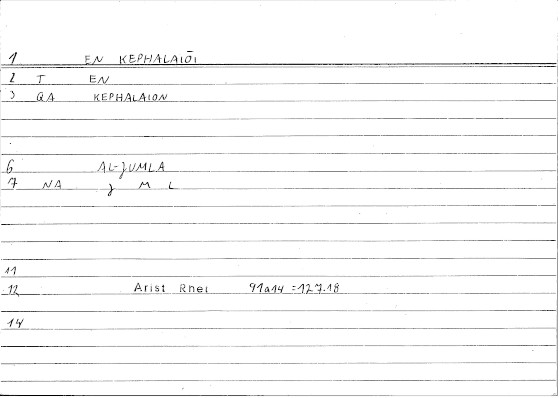 1 EN KEPHALAIŌI
2 T EN
3 QA KEPHALAION
6 AL-JUMLA
7 NA J M L
11
12 Arist Rhet 91a14 =127.18
14